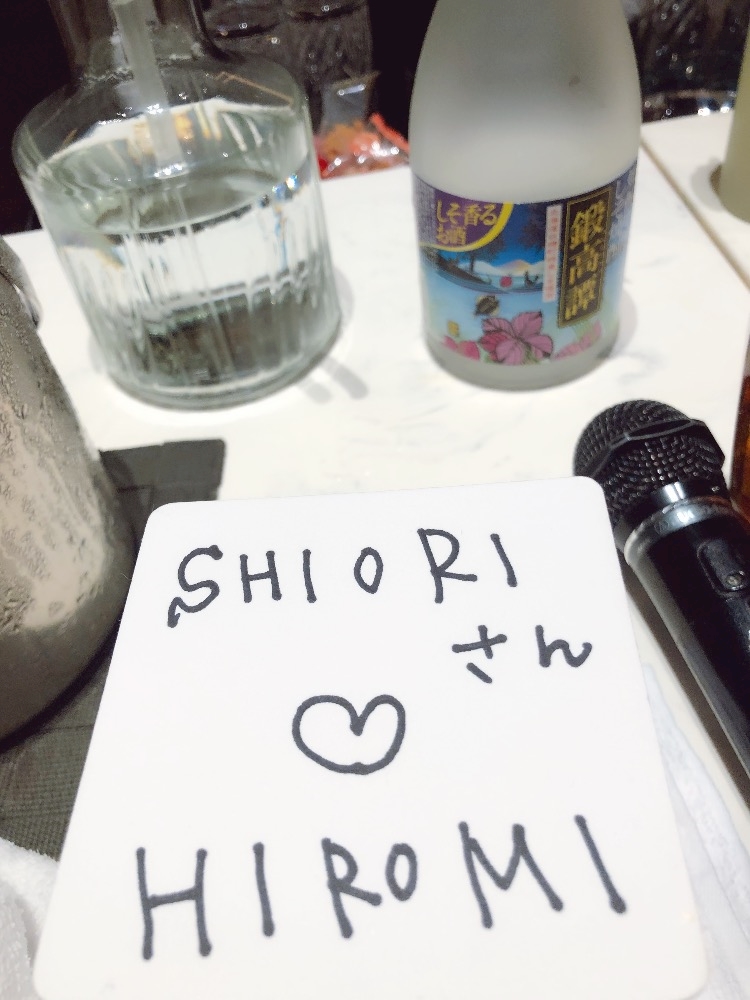 しそ香る
お酒
鍛高譚
SHIORI
さん
HIROMI